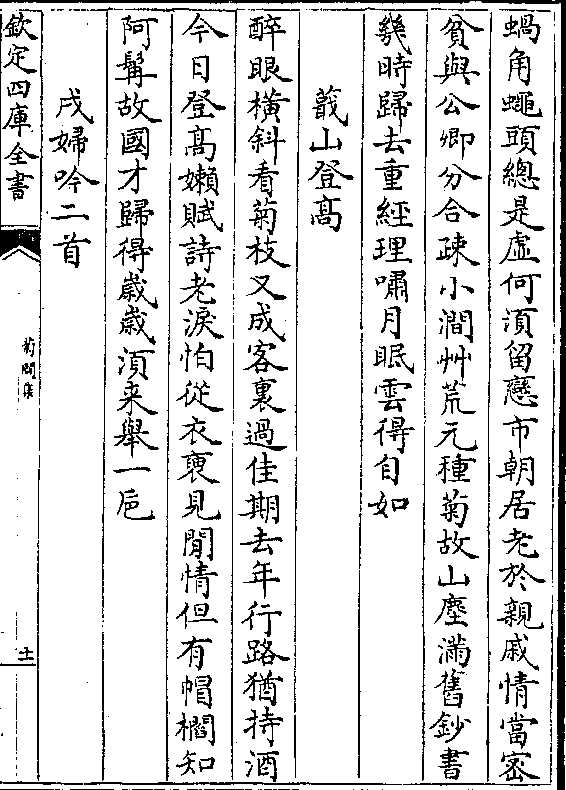 蝸角蠅頭總是虚何湏留戀市朝居老於親戚情當宻
貧與公卿分合疎小澗艸荒元種菊故山塵滿舊鈔書
幾時歸去重經理嘯月眠雲得自如
蕺山登髙
醉眼横斜看菊枝又成客裏過佳期去年行路猶持酒
今日登髙嬾賦詩老淚怕從衣裏見閒情但有帽櫩知
阿髯故國才歸得歳歳湏来舉一巵
戍婦吟二首
欽定四庫全書
菊礀集
十一